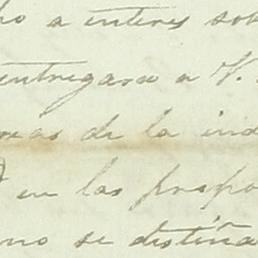 ho a interes sob
entregara a V.
mas de la ind
en las propo
no se destina